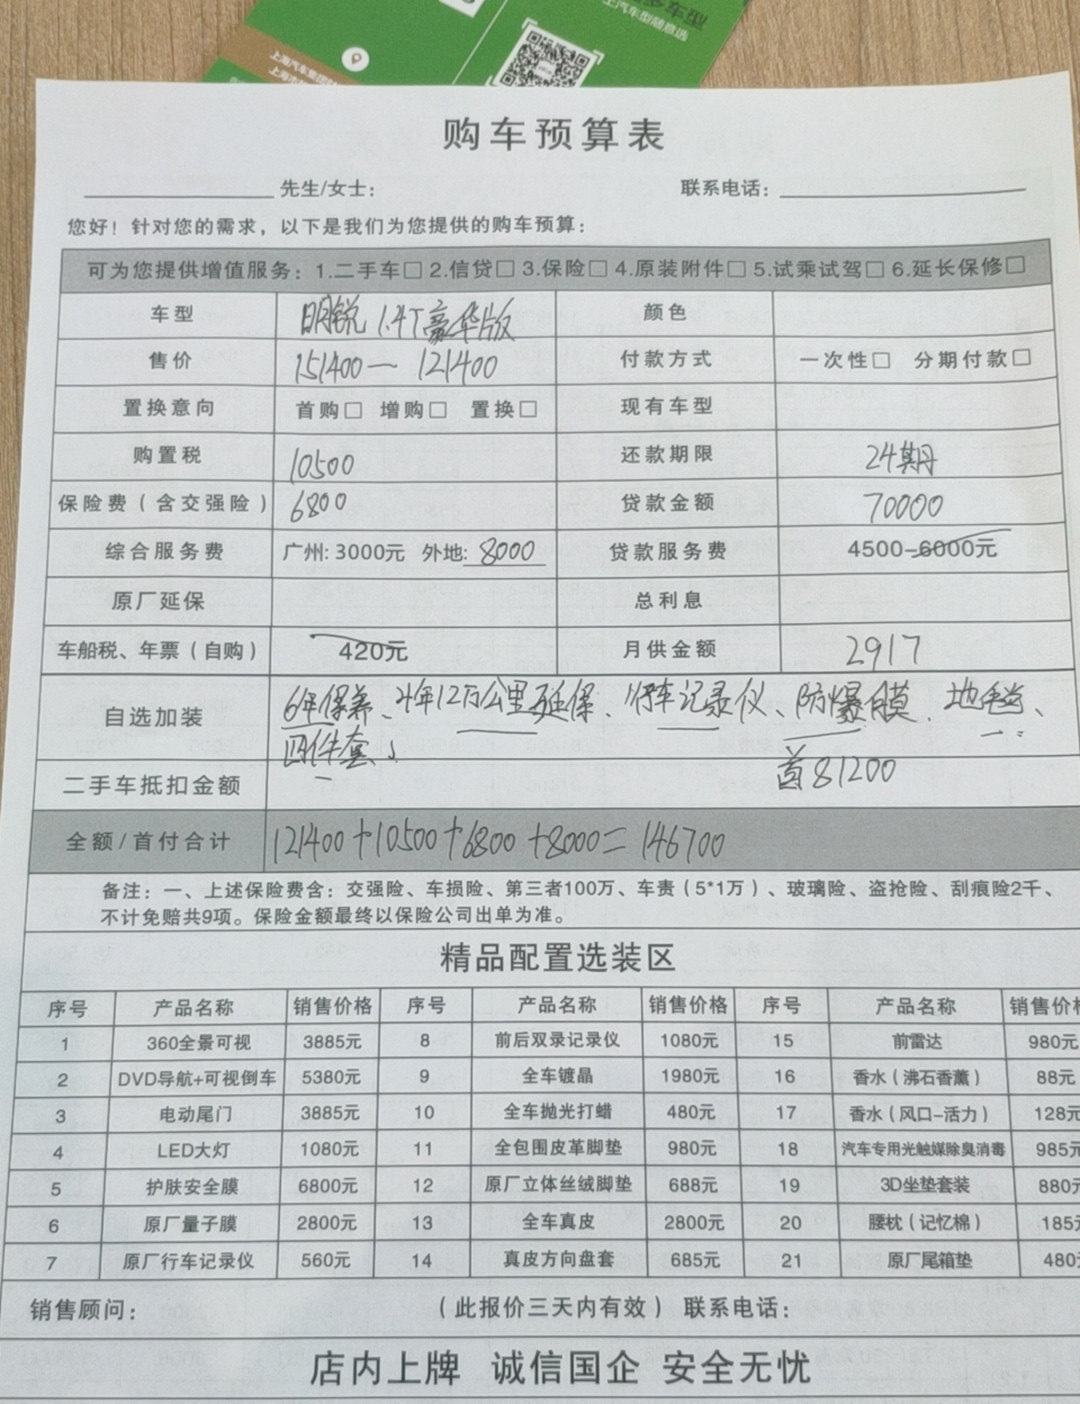 多车型
上汽车型随意选
上海汽车集团
购车预算表
先生/女士： 联系电话：
您好！针对您的需求，以下是我们为您提供的购车预算：
可为您提供增值服务：1.二手车□ 2.信贷□ 3.保险□ 4.原装附件□ 5.试乘试驾□ 6.延长保修□
车型 明锐 1.4T豪华版 颜色
售价 151400— 121400 付款方式 一次性□ 分期付款□
置换意向 首购□ 增购□ 置换□ 现有车型
购置税 10500 还款期限 24期
保险费（含交强险） 6800 贷款金额 70000
综合服务费 广州: 3000元 外地: 8000 贷款服务费 4500-6000元
原厂延保 总利息
车船税、年票（自购） 420元 月供金额 2917
自选加装 6年保养、4年12万公里延保、行车记录仪、防爆膜、地毯、
四件套、
二手车抵扣金额 首81200
全额/首付合计 121400+10500+6800+8000=146700
备注：一、上述保险费含：交强险、车损险、第三者100万、车责（5*1万）、玻璃险、盗抢险、刮痕险2千、
不计免赔共9项。保险金额最终以保险公司出单为准。
精品配置选装区
序号 产品名称 销售价格 序号 产品名称 销售价格 序号 产品名称 销售价格
1 360全景可视 3885元 8 前后双录记录仪 1080元 15 前雷达 980元
2 DVD导航+可视倒车 5380元 9 全车镀晶 1980元 16 香水（沸石香薰） 88元
3 电动尾门 3885元 10 全车抛光打蜡 480元 17 香水（风口-活力） 128元
4 LED大灯 1080元 11 全包围皮革脚垫 980元 18 汽车专用光触媒除臭消毒 985元
5 护肤安全膜 6800元 12 原厂立体丝绒脚垫 688元 19 3D坐垫套装 880元
6 原厂量子膜 2800元 13 全车真皮 2800元 20 腰枕（记忆棉） 185元
7 原厂行车记录仪 560元 14 真皮方向盘套 685元 21 原厂尾箱垫 480元
销售顾问： （此报价三天内有效） 联系电话：
店内上牌 诚信国企 安全无忧